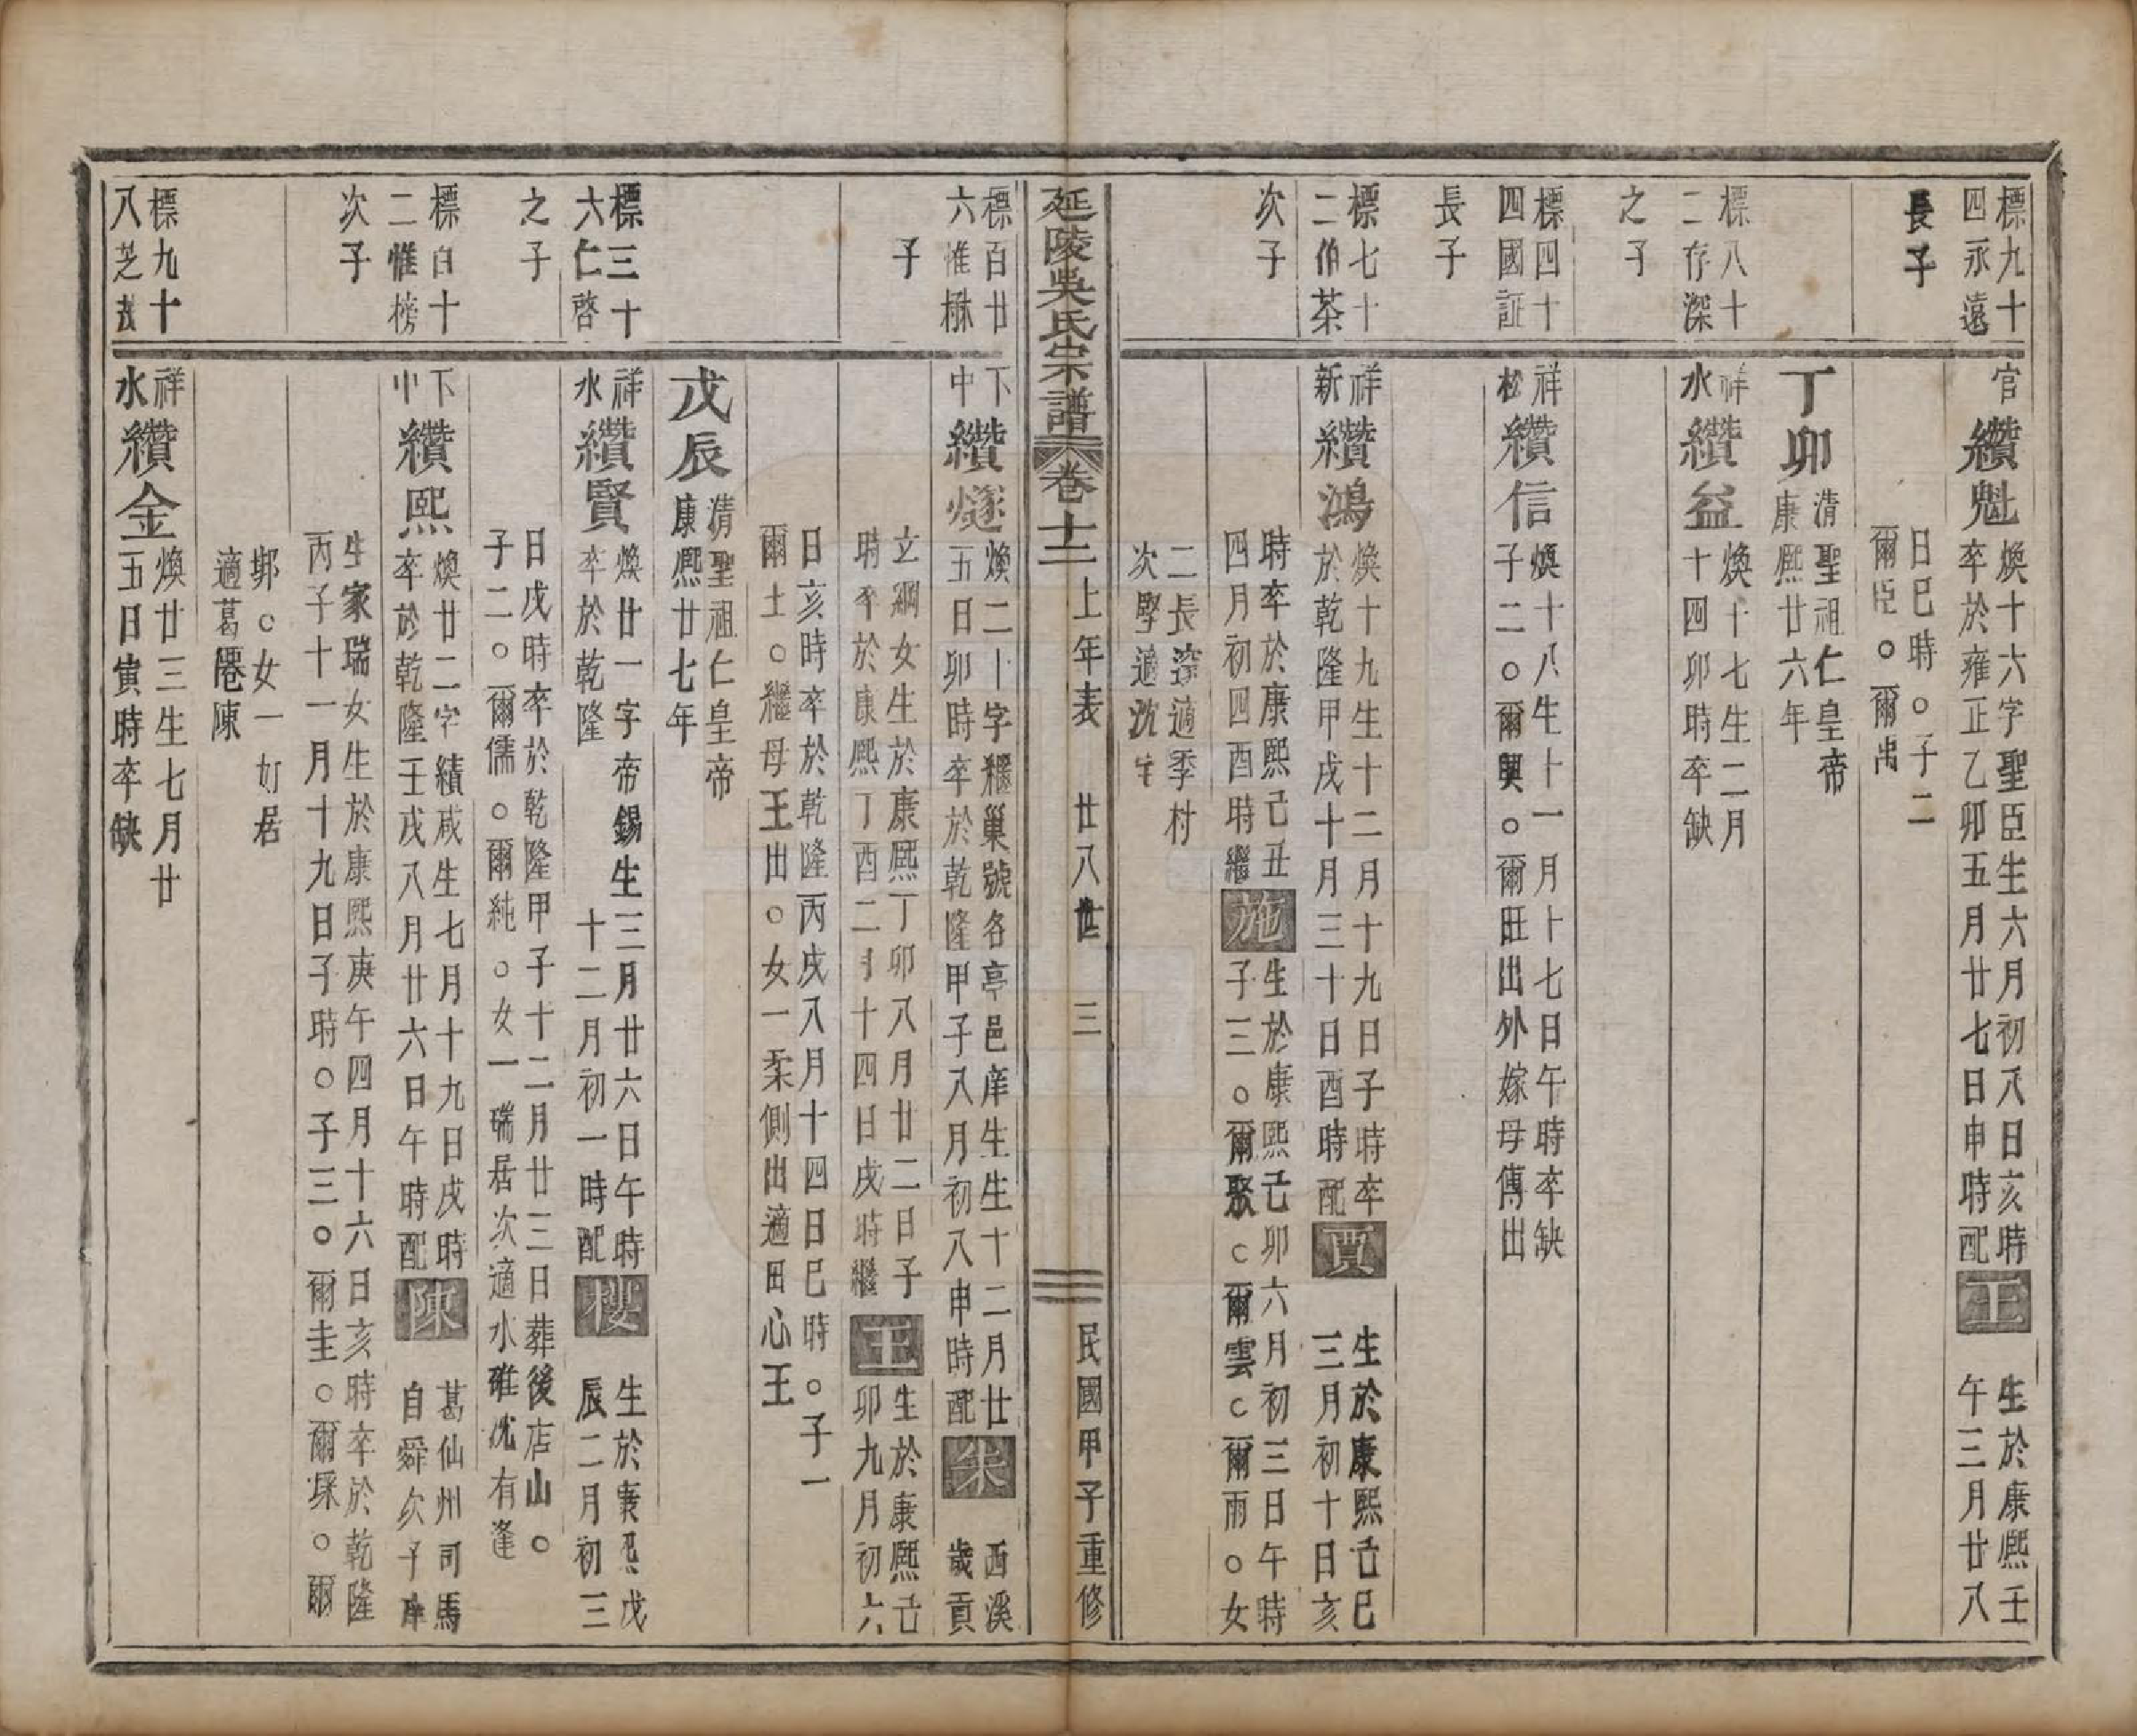 標九十
四永遠
長子
官
纘魁
煥十六字聖臣生六月初八日亥時
卒於雍正乙卯五月廿七日申時配
王
生於康熙壬
午三月廿八
日巳時○子二
爾臣○爾禹
丁卯
清聖祖仁皇帝
康熙廿六年
標八十
二存深
之子
祥
水
纘益
煥十七生二月
十四卯時卒缺
標四十
四國証
長子
祥
松
纘信
煥十八生十一月十七日午時卒缺
子二○爾興○爾旺出外嫁母傳出
標七十
二伯茶
次子
祥
新
纘鴻
煥十九生十二月十九日子時卒
於乾隆甲戌十月三十日酉時配
賈
生於康熙己巳
三月初十日亥
時卒於康熙己丑
四月初四酉時繼
施
生於康熙己卯六月初三日午時
子三○爾聚○爾雲○爾雨○女
二長適季村
次適沈宅
延陵吳氏宗譜
卷十二
上年表
廿八世
三
民國甲子重修
標百廿
六惟楙
子
下
中
纘燧
煥二十字繼巢號各亭邑庠生生十二月廿
五日卯時卒於乾隆甲子八月初八申時配
朱
西溪
歲貢
立綱女生於康熙丁卯八月廿二日子
時卒於康熙丁酉二月十四日戌時繼
王
生於康熙己
卯九月初六
日亥時卒於乾隆丙戌八月十四日巳時○子一
爾士○繼母王出○女一柔側出適田心王
戊辰
清聖祖仁皇帝
康熙廿七年
標三十
六仁啓
之子
祥
水
纘賢
煥廿一字帝錫生三月廿六日午時
卒於乾隆十二月初一時配
樓
生於康熙戊
辰二月初三
日戌時卒於乾隆甲子十二月廿三日葬後店山○
子二○爾儒○爾純○女一瑞居次適水碓沈有逢
標百十
二惟榜
次子
下
中
纘熙
煥廿二字績咸生七月十九日戌時
卒於乾隆壬戌八月廿六日午時配
陳
葛仙州司馬
自舜次子庠
生家瑞女生於康熙庚午四月十六日亥時卒於乾隆
丙子十一月十九日子時○子三○爾圭○爾琛○爾
鄴○女一如居
適葛陳
標九十
八芝
祥
水
纘金
煥廿三生七月廿
五日寅時卒缺